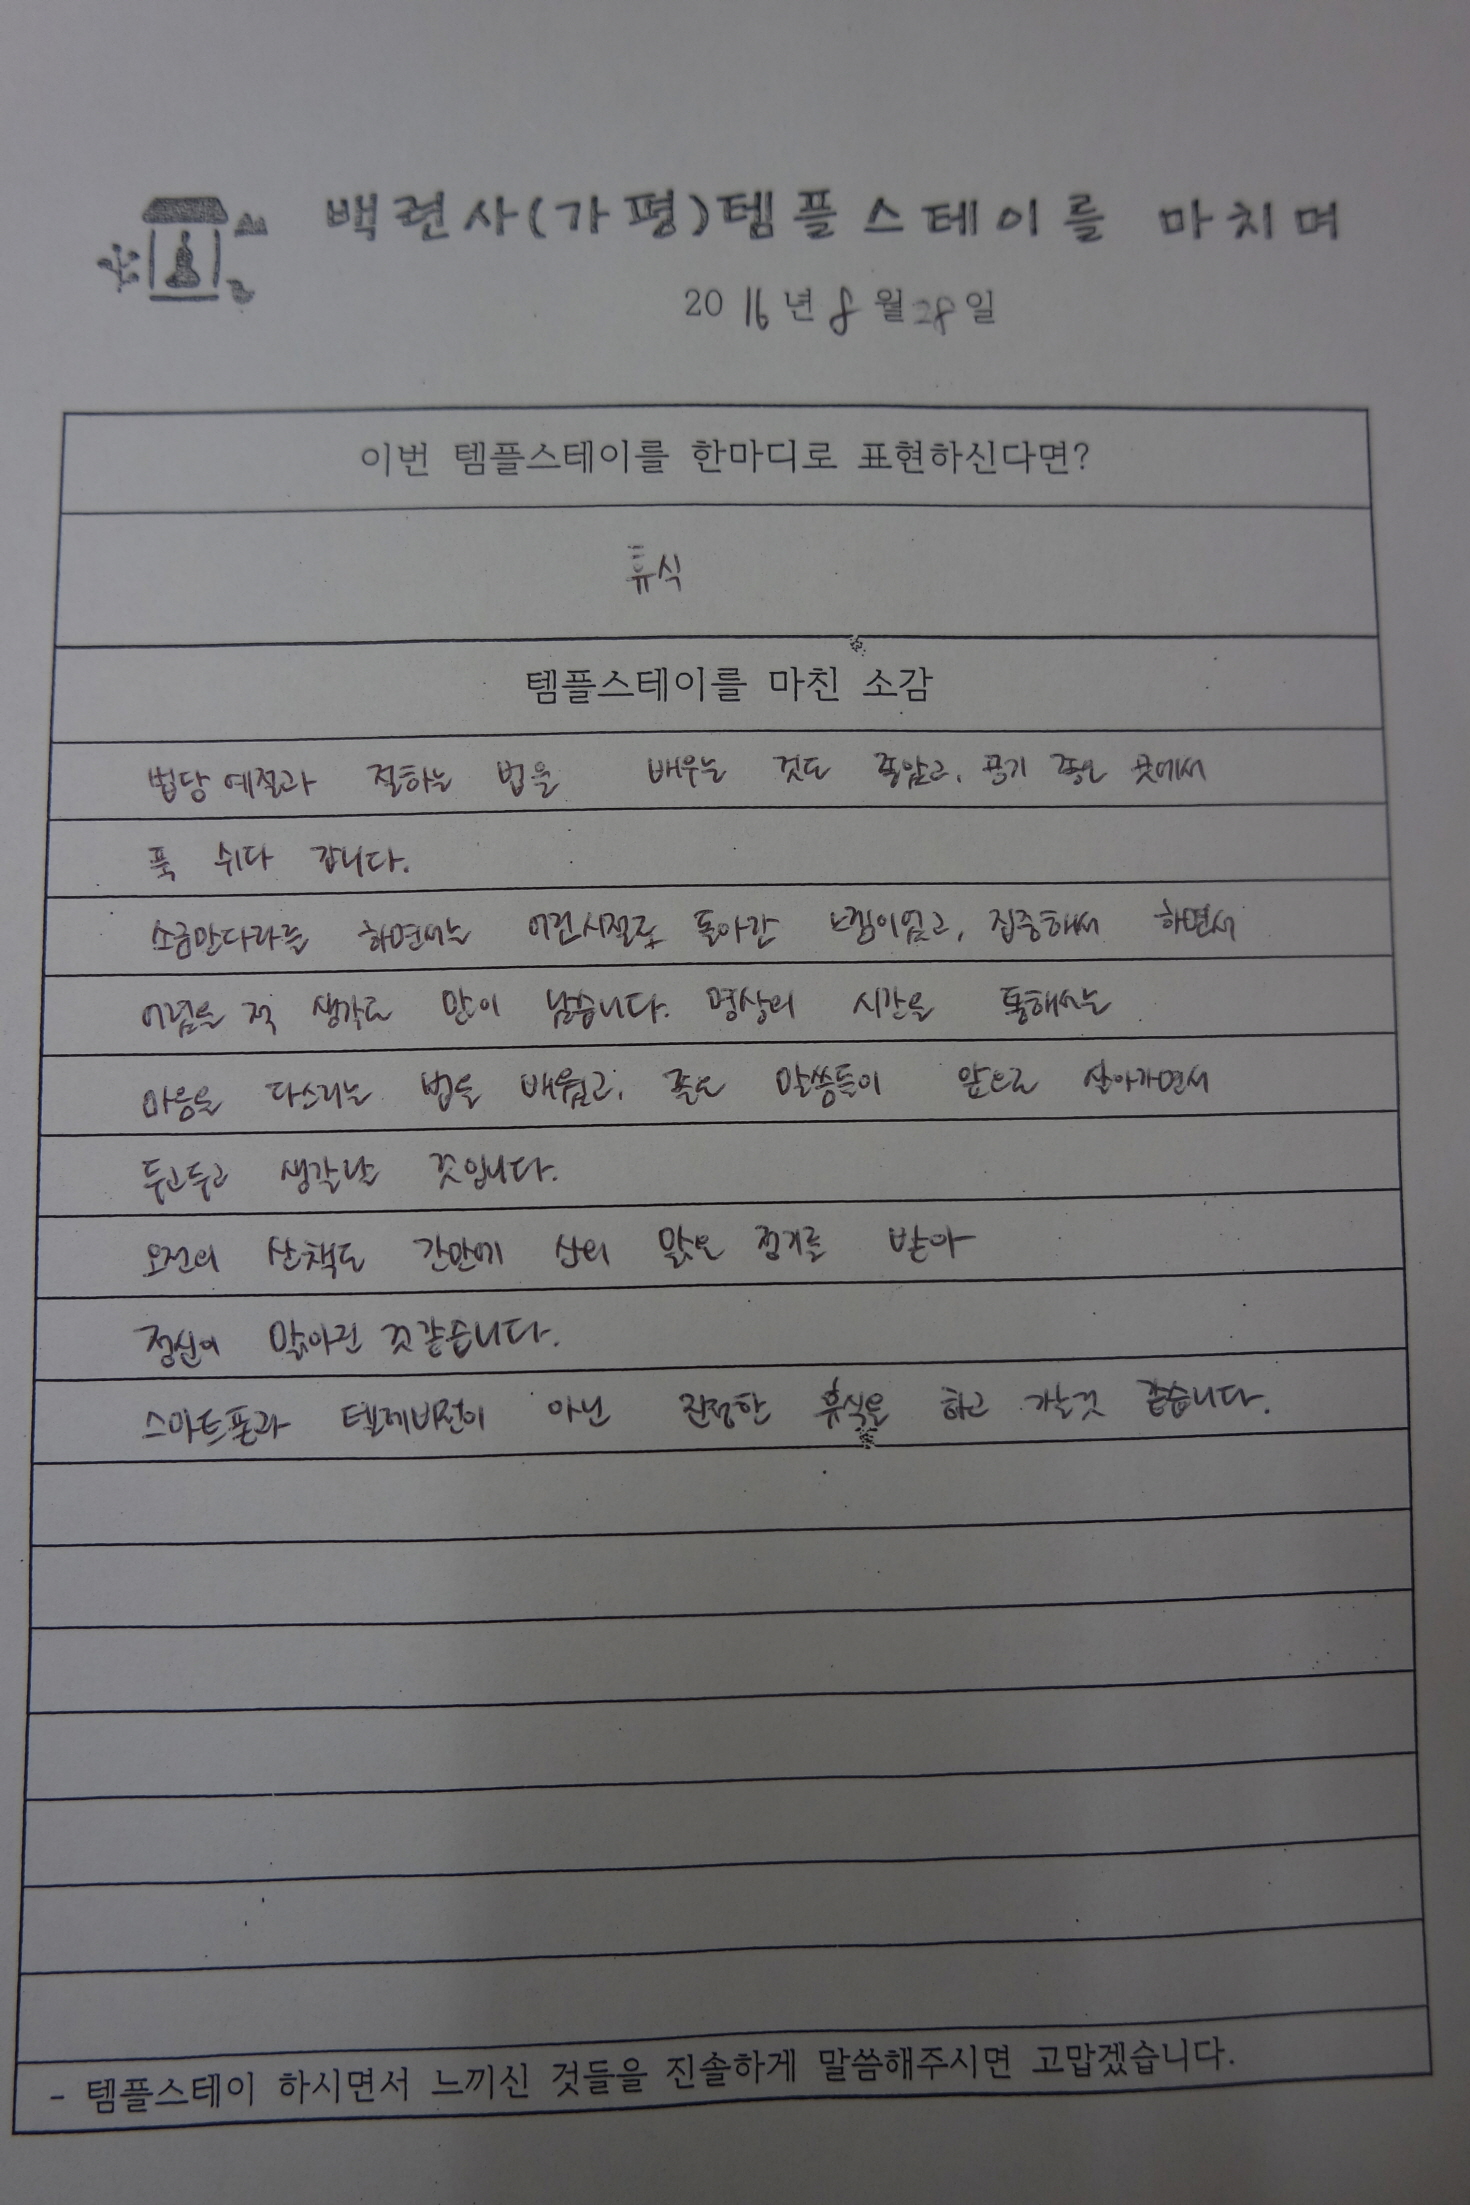 백련사(가평)템플스테이를 마치며
2016년 8월 28일
이번 템플스테이를 한마디로 표현하신다면?
휴식
템플스테이를 마친 소감
법당 예절과 절하는 법을 배우는 것도 좋았고, 공기 좋은 곳에서
푹 쉬다 갑니다.
소금만다라를 하면서는 어린시절로 돌아간 느낌이었고, 집중해서 하면서
어렸을 적 생각도 많이 났습니다. 명상의 시간을 통해서는
마음을 다스리는 법을 배웠고, 좋은 말씀들이 앞으로 살아가면서
두고두고 생각날 것입니다.
오전의 산책도 간만에 산의 맑은 정기를 받아
정신이 맑아진 것같습니다.
스마트폰과 텔레비전이 아닌 진정한 휴식을 하고 가는것 같습니다.
- 템플스테이 하시면서 느끼신 것들을 진솔하게 말씀해주시면 고맙겠습니다.